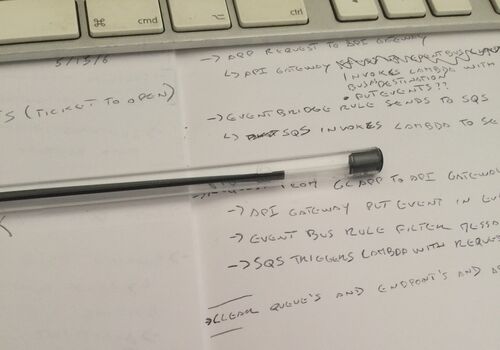 ⌘ cmd
⌥
ctrl
5/15/6
TS (TICKET TO OPEN)
→ APP REQUEST TO API GATEWAY
↳ API GATEWAY
INVOKES LAMBDA WITH
BUS DESTINATION
• PUT EVENTS??
→ EVENTBRIDGE RULE SENDS TO SQS
↳ SQS INVOKES LAMBDA TO SE
FROM GC APP TO API GATEWAY
→ API GATEWAY PUT EVENT IN EV
→ EVENT BUS RULE FILTER MESSA
→ SQS TRIGGERS LAMBDA WITH REQUES
→ CLEAR QUEUE'S AND ENDPOINT'S AND AP